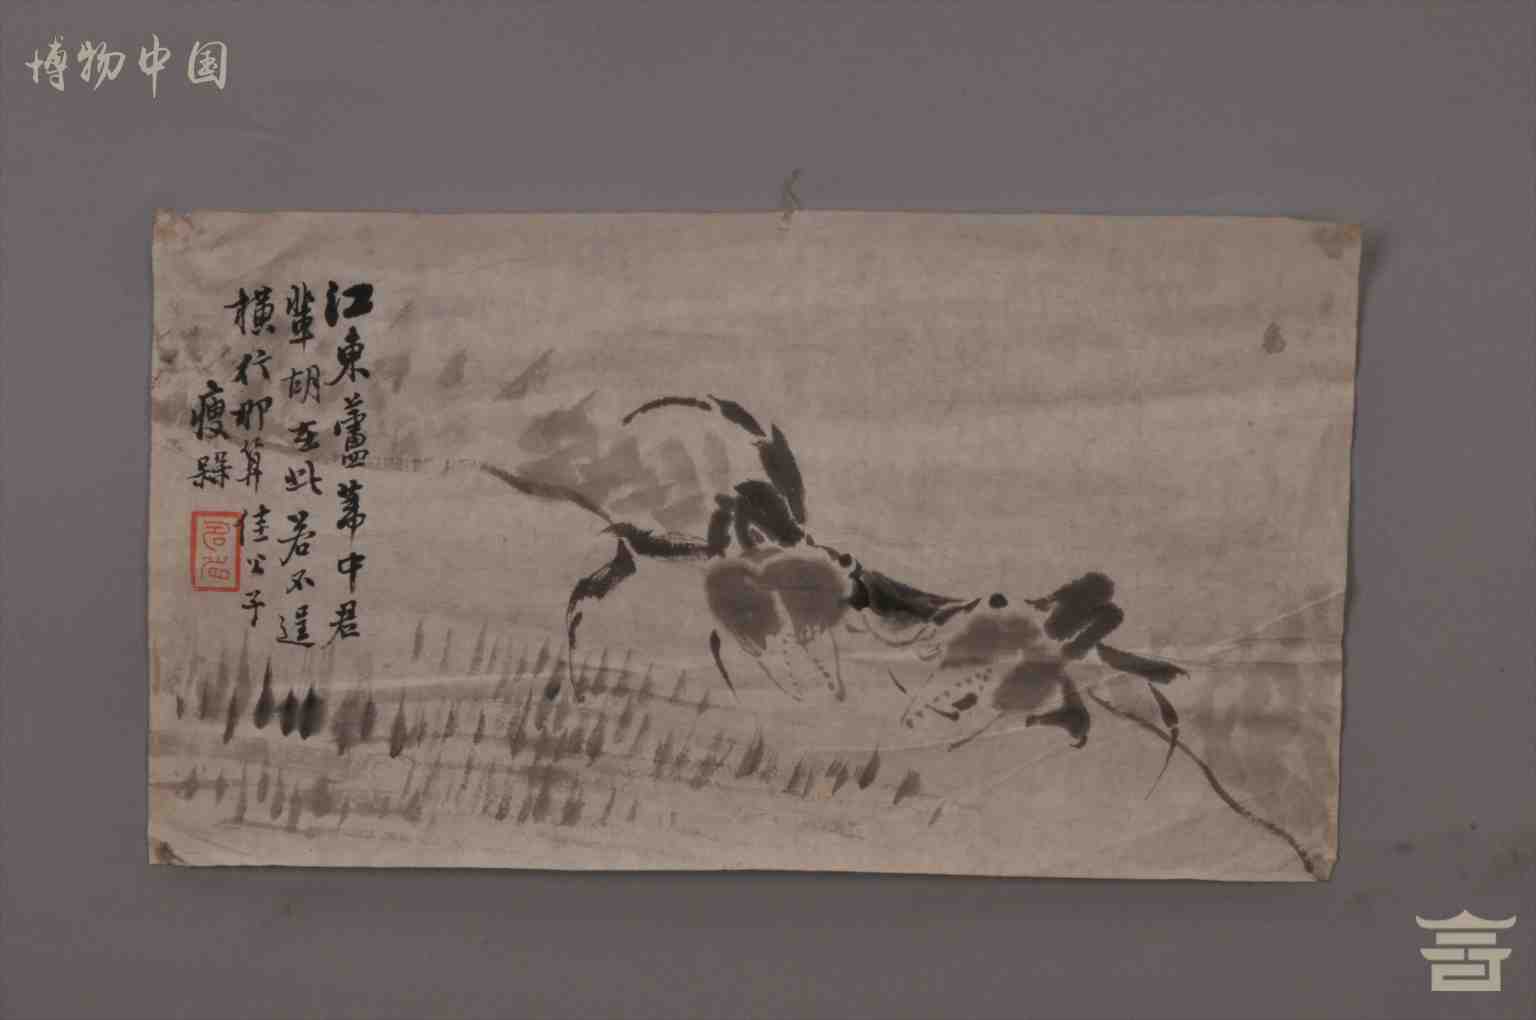 博物中国
江東蘆葦中君
輩胡在此若不逞
橫行那算佳公子
瘦